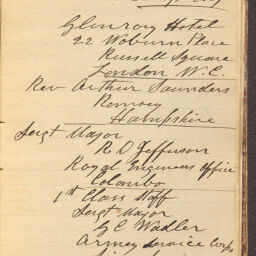 Glenroy Hotel
22 Woburn Place
Russell Square
London W.C.
Rev Arthur Saunders
Romsey
Hampshire
Sergt Major
R D Jefferson
Royal Engineers Office
Colombo
1st Class Staff
Sergt Major
G C Wadler
Army Service Corps